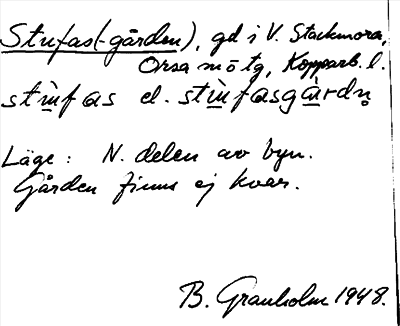 Stufas(-gården), gd i V. Stackmora,
Orsa mō tg, Kopparb. l.
stùfas el. stùfasgàrdn̥
Läge: N. delen av byn.
Gården finns ej kvar.
B. Granholm 1948.